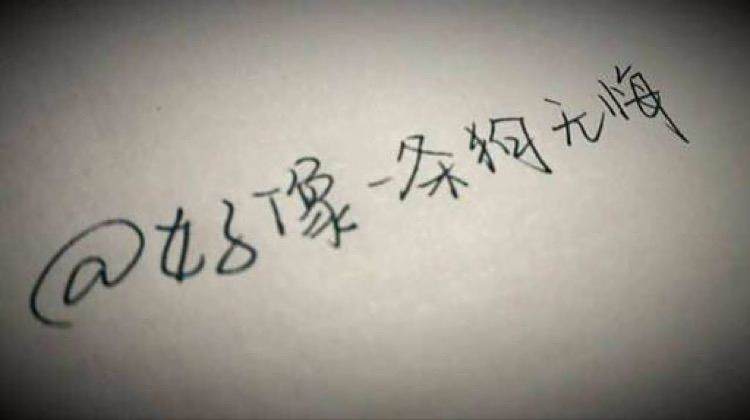 @好像一条狗无悔